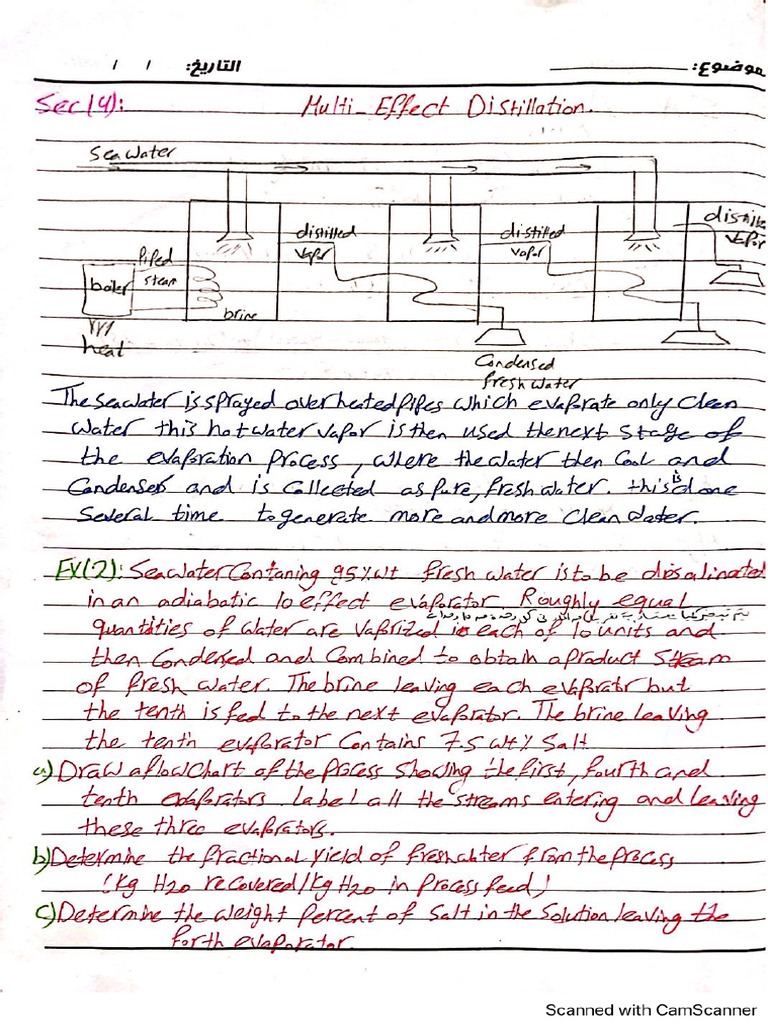 موضوع: التاريخ: / /
Sec(4): Multi-Effect Distillation.
Sea water
distilled vapor
distilled vapor
distille vapor
boiler
Piped steam
brine
heat
Condensed fresh water
The seawater is sprayed over heated pipes which evaporate only clean
water this hot water vapor is then used the next stage of
the evaporation process, where the water then cool and
Condenses and is collected as pure, fresh water. this is done
Several time to generate more and more clean water.
EX(2): Seawater Contaning 95%wt fresh water is to be dissalinated
in an adiabatic 10 effect evaporator. Roughly equal
quantities of water are vaporized in each of 10 units and
then Condensed and Combined to obtain a product stream
of fresh water. The brine leaving each evaporatr but
the tenth is fed to the next evaporator. The brine leaving
the tenth evaporator Contains 7.5 wt% Salt
a) Draw a flow chart of the process showing the first, fourth and
tenth evaporators. Label all the streams entering and leaving
these three evaporators.
b) Determine the fractional yield of fresh water from the process
(kg H2O recovered/kg H2O in process feed)
C) Determine the weight percent of salt in the solution leaving the
forth evaporator.
Scanned with CamScanner